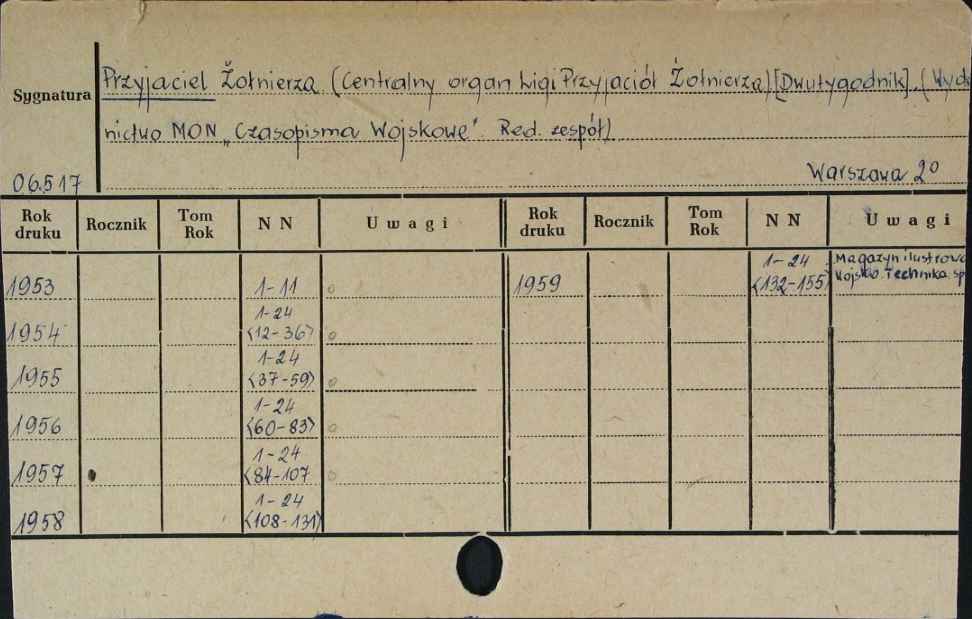 Przyjaciel Żołnierza (Centralny organ Ligi Przyjaciół Żołnierza)[Dwutygodnik]. (Wyda
Sygnatura
nictwo MON „Czasopisma Wojskowe". Red. zespół)
06517 Warszawa 2°
Rok druku Rocznik Tom Rok NN Uwagi Rok druku Rocznik Tom Rok NN Uwagi
1-24 Magazyn ilustrowa
1953 1-11 1959 <132-155) Wojsko. Technika. sp
1-24
1954 <12-36>
1-24
1955 <37-59>
1-24
1956 <60-83>
1-24
1957 <84-107
1-24
1958 <108-131>